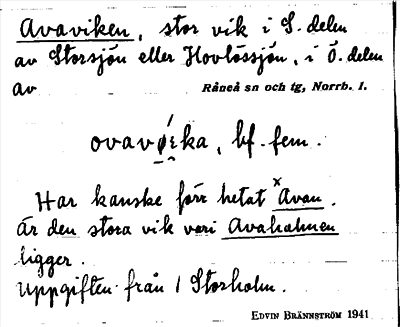 Avaviken, stor vik i S. delen
av Storsjön eller Hovlössjön, i Ö. delen
av Råneå sn och tg, Norrb. l.
bf. fem.
Har kanske förr hetat ˣAvan.
Är den stora vik vari Avaholmen
ligger.
Uppgiften från 1 Storholm.
EDVIN BRÄNNSTRÖM 1941